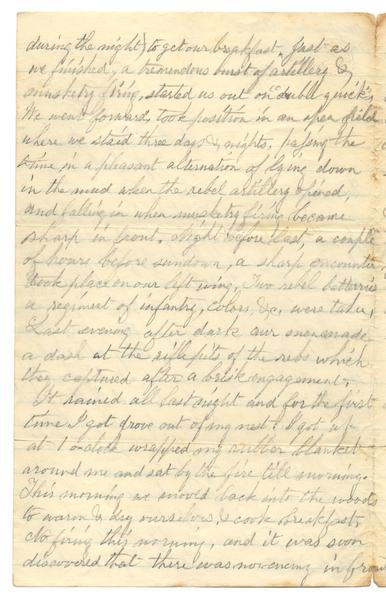 during the night) to get our breakfast. Just as
we finished, a tremendous burst of artillery &
musketry firing, started us out on "double quick".
We went forward, took position in an open field
where we staid three days & nights, passing the
time in a pleasant alternation of lying down
in the mud when the rebel artillery opened,
and falling in when musketry firing became
sharp in front. Night before last, a couple
of hours before sundown, a sharp encounter
took place on our left wing, Two rebel batteries
a regiment of infantry, colors, &c, were taken,
Last evening after dark our men made
a dash at the riflepits of the rebs which
they captured after a brisk engagement.
It rained all last night and for the first
time I got drove out of my nest. I got up
at 1 o-clock wrapped my rubber blanket
around me and sat by the fire till morning.
This morning we moved back into the woods
to warm & dry ourselves, & cook breakfast,
No firing this morning, and it was soon
discovered that there was no enemy in front